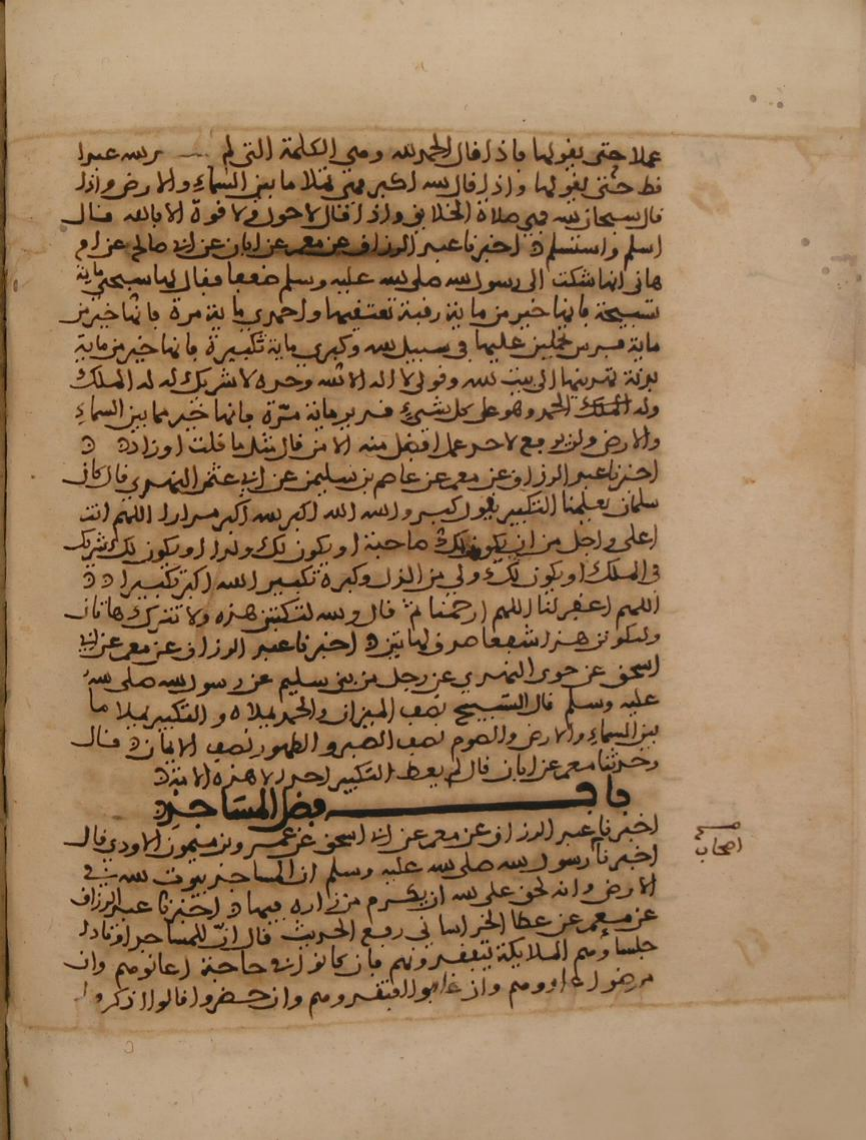 عملا حتى يقولها فاذا قال الحمد لله وهي الكلمة التي لم الله عبدا
قط حتى يقولها واذا قال الله اكبر فهي تملا ما بين السماء والارض واذا
قال سبحان الله فهي صلاة الخلايق واذا قال لا حول ولا قوة الا بالله قال
اسلم واستسلم اخبرنا عبد الرزاق عن معمر عن ابان عن ابي صالح عن ام
هاني انها شكت الى رسول الله صلى الله عليه وسلم ضعفا فقال لها سبحي ماية
تسبيحة فانها خير من ماية رقبة تعتقيها واحمدي ماية مرة فانها خير من
ماية فرس تحملين عليها في سبيل الله وكبري ماية تكبيرة فانها خير من ماية
بدنة تهدينها الى بيت الله وقولي لا اله الا الله وحده لا شريك له له الملك
وله الحمد وهو على كل شيء قدير ماية مرة فانها خير مما بين السماء
والارض ولن يرفع لاحد عمل افضل منه الا من قال مثل ما قلت او زاد
اخبرنا عبد الرزاق عن معمر عن عاصم بن سليمن عن ابي عثمن النهدي قال كان
سلمان يعلمنا التكبير يقول كبروا الله الله اكبر الله اكبر مرارا اللهم انت
اعلى واجل من ان يكون لك صاحبة او يكون لك ولدا او يكون لك شريك
في الملك او يكون لك ولي من الذل وكبره تكبيرا الله اكبر تكبيرا
اللهم اغفر لنا اللهم ارحمنا ثم قال والله لتكتبن هذه ولا تترك هاتان
وليكونن هذا شفعا صدق لهاتين اخبرنا عبد الرزاق عن معمر عن ابي
اسحق عن جري النهدي عن رجل من بني سليم عن رسول الله صلى الله
عليه وسلم قال التسبيح نصف الميزان والحمد يملاه والتكبير يملا ما
بين السماء والارض والصوم نصف الصبر والطهور نصف الايمان قال
وحدثنا معمر عن ابان قال لم يعط التكبير احد الا هذه الامة
باب فضل المساجد
اخبرنا عبد الرزاق عن معمر عن ابي اسحق عن عمرو بن ميمون الاودي قال
اخبرنا رسول الله صلى الله عليه وسلم ان المساجد بيوت الله في
الارض وانه لحق على الله ان يكرم من زاره فيها اخبرنا عبد الرزاق
عن معمر عن عطا الخراساني رفع الحديث قال ان للمساجد اوتادا
جلساؤهم الملايكة يتفقدونهم فان كانوا في حاجة اعانوهم وان
مرضوا عادوهم وان غابوا افتقدوهم وان حضروا قالوا اذكروا
اصحاب